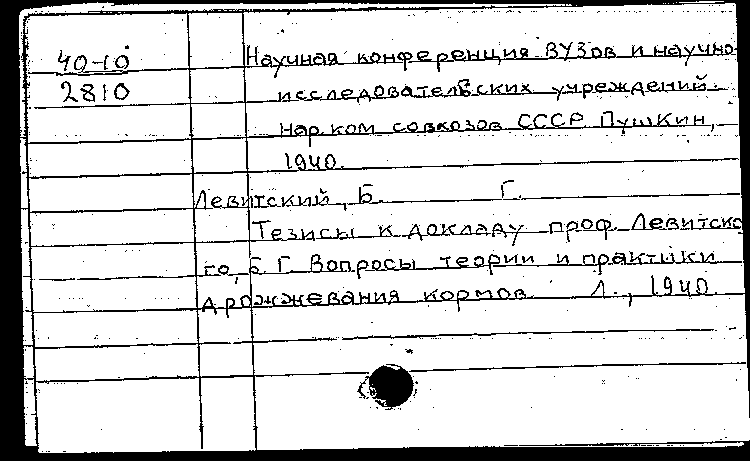 40-10
2810
Научная конференция ВУЗов и научно-
исследовательских учреждений.
Нарком совхозов СССР. Пушкин,
1940.
Левитский, Б. Г.
Тезисы к докладу проф. Левитско
го, Б. Г. Вопросы теории и практики
дрожжевания кормов. Л., 1940.